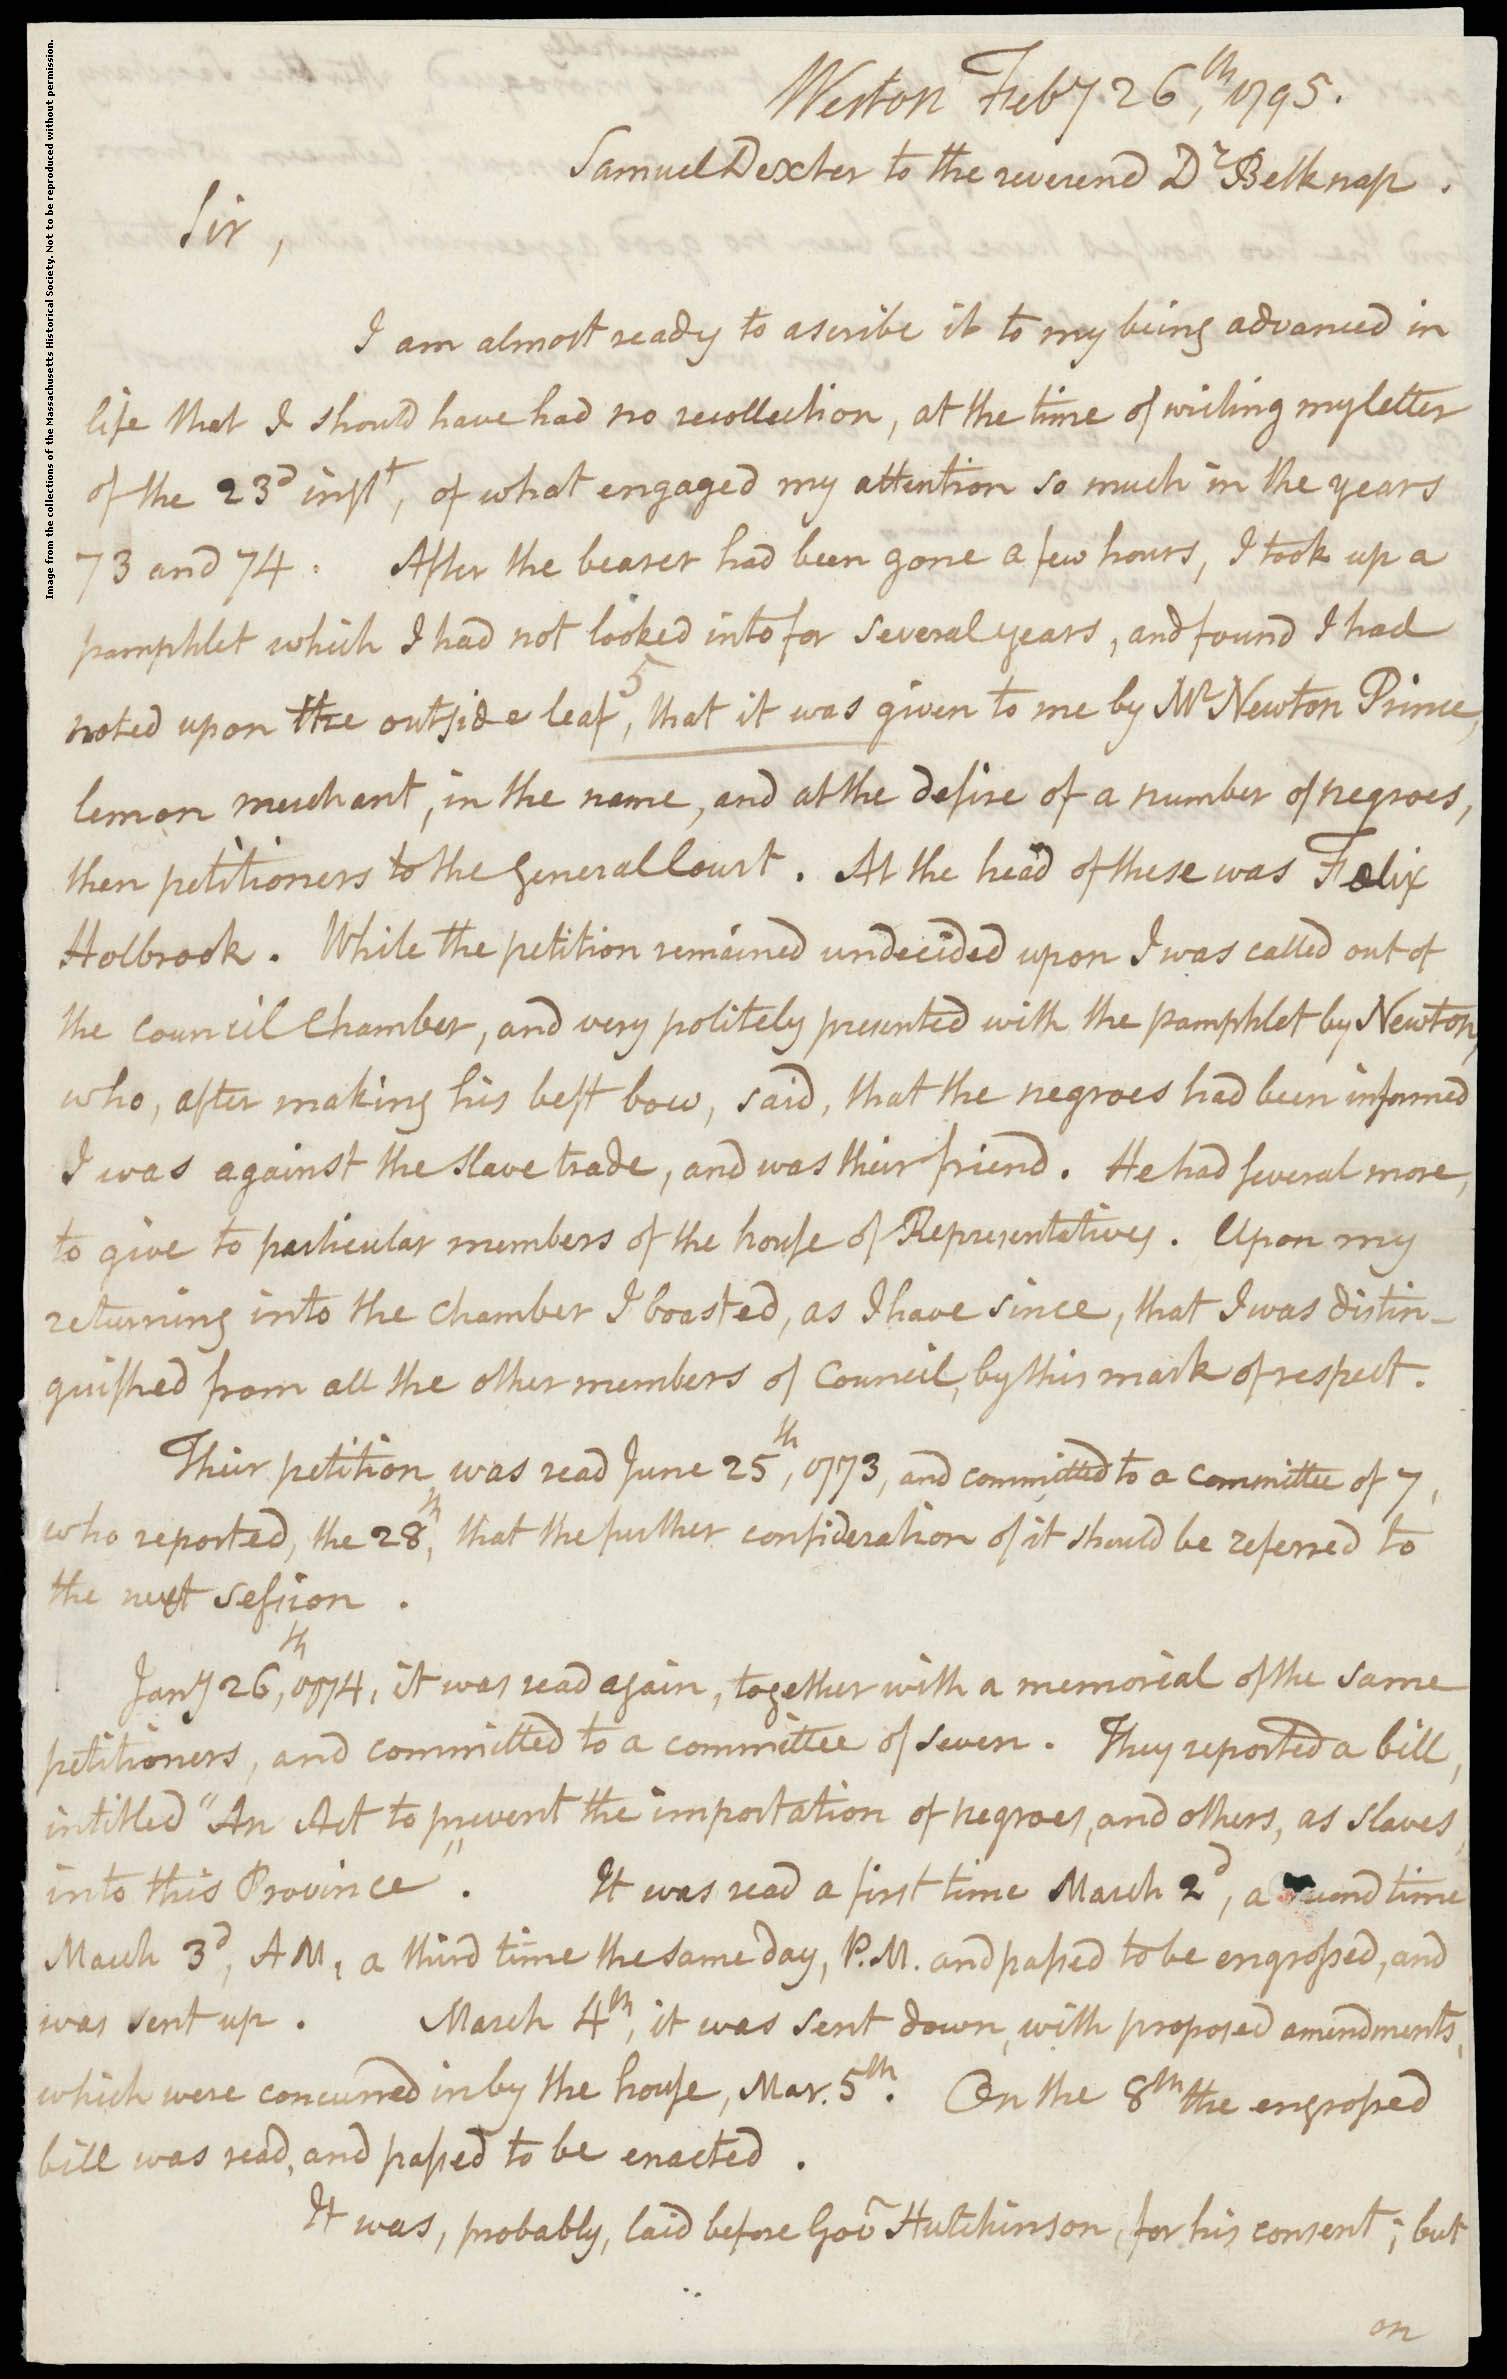 Image from the collections of the Massachusetts Historical Society. Not to be reproduced without permission.
Weston Feby 26th, 1795.
Samuel Dexter to the reverend Dr Belknap.
Sir,
I am almost ready to ascribe it to my being advanced in
life that I should have had no recollection, at the time of writing my letter
of the 23d inst, of what engaged my attention so much in the years
73 and 74. After the bearer had been gone a few hours, I took up a
pamphlet which I had not looked into for several years, and found I had
noted upon the outside leaf, that it was given to me by Mr Newton Prince,
lemon merchant, in the name, and at the desire of a number of negroes,
then petitioners to the General Court. At the head of these was Felix
Holbrook. While the petition remained undecided upon I was called out of
the council chamber, and very politely presented with the pamphlet by Newton,
who, after making his best bow, said, that the negroes had been informed
I was against the slave trade, and was their friend. He had several more,
to give to particular members of the house of Representatives. Upon my
returning into the chamber I boasted, as I have since, that I was distin-
guished from all the other members of Council, by this mark of respect.
Their petition was read June 25th, 1773, and committed to a committee of 7,
who reported, the 28th, that the further consideration of it should be referred to
the next session.
Jany 26th, 1774, it was read again, together with a memorial of the same
petitioners, and committed to a committee of seven. They reported a bill,
intitled "An Act to prevent the importation of negroes, and others, as slaves,
into this Province". It was read a first time March 2d, a second time
March 3d, A M, a third time the same day, P.M. and passed to be engrossed, and
was sent up. March 4th, it was sent down, with proposed amendments,
which were concurred in by the house, Mar. 5th. On the 8th the engrossed
bill was read, and passed to be enacted.
It was, probably, laid before Gov Hutchinson, for his consent; but
on